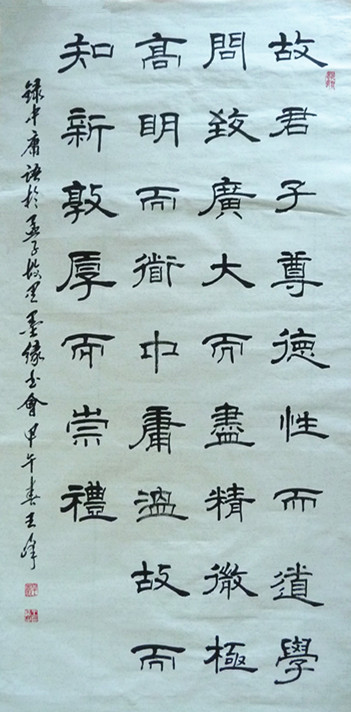 故君子尊德性而道學
問致廣大而盡精微極
髙明而衜中庸溫故而
知新敦厚而崇禮
録中庸語於孟子故里墨缘书會甲午春王峰